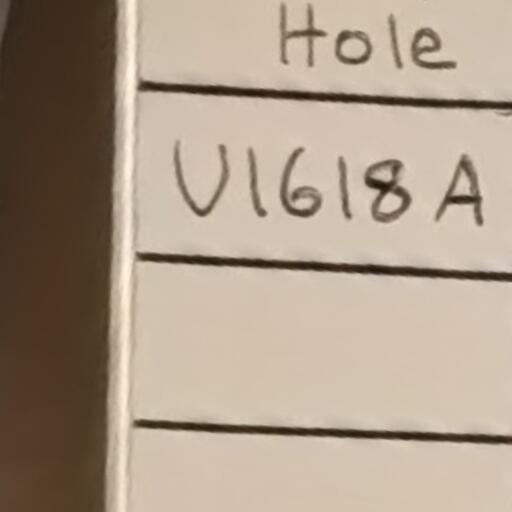 Hole
U1618A